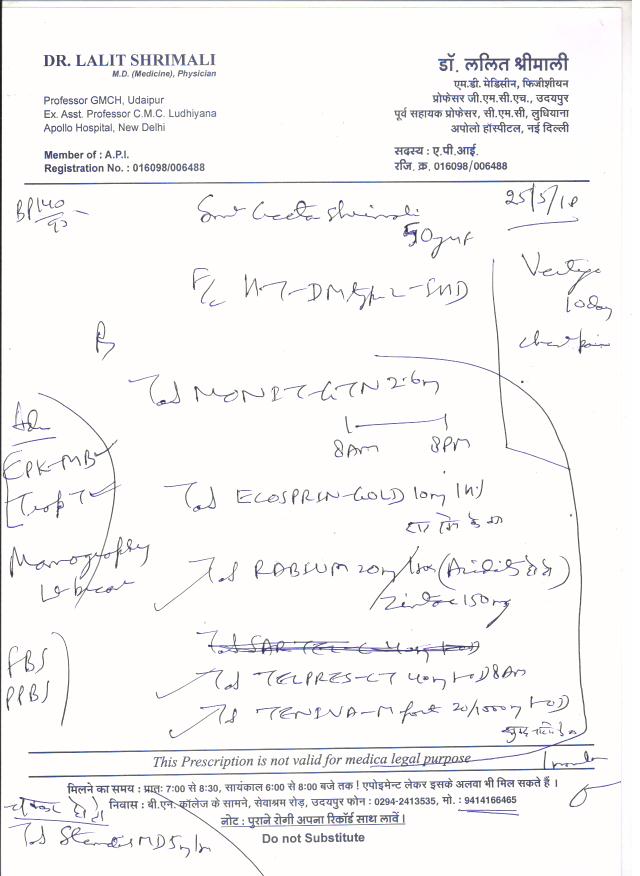 DR. LALIT SHRIMALI
M.D. (Medicine), Physician
Professor GMCH, Udaipur
Ex. Asst. Professor C.M.C. Ludhiyana
Apollo Hospital, New Delhi
Member of : A.P.I.
Registration No. : 016098/006488
डॉ. ललित श्रीमाली
एम.डी. मेडिसीन, फिजीशीयन
प्रोफेसर जी.एम.सी.एच., उदयपुर
पूर्व सहायक प्रोफेसर, सी.एम.सी, लुधियाना
अपोलो हॉस्पीटल, नई दिल्ली
सदस्य : ए.पी.आई.
रजि. क्र. 016098/006488
BP 140/90
25/5/18
Smt Geeta Shrimali
50yr/F
Vertigo
10day
chest pain
Tab MONIT-GTN 2.6m
8AM 8PM
Adv
CPK-MB
Trop T
Tab ECOSPRIN-GOLD 10mg
Mamography
Lt breast
Tab RABIUM 20mg
Zintac 150mg
FBS
PPBS
Tab TELPRES-CT 40mg 1-OD 8AM
Tab TENIVA-M fort 20/1000mg 1-OD
This Prescription is not valid for medica legal purpose
मिलने का समय : प्रातः 7:00 से 8:30, सायंकाल 6:00 से 8:00 बजे तक ! एपोइमेन्ट लेकर इसके अलवा भी मिल सकते हैं ।
निवास : बी.एन. कॉलेज के सामने, सेवाश्रम रोड़, उदयपुर फोन : 0294-2413535, मो. : 9414166465
नोट : पुराने रोगी अपना रिकॉर्ड साथ लावें ।
Do not Substitute
Tab Stemetil MD 5mg